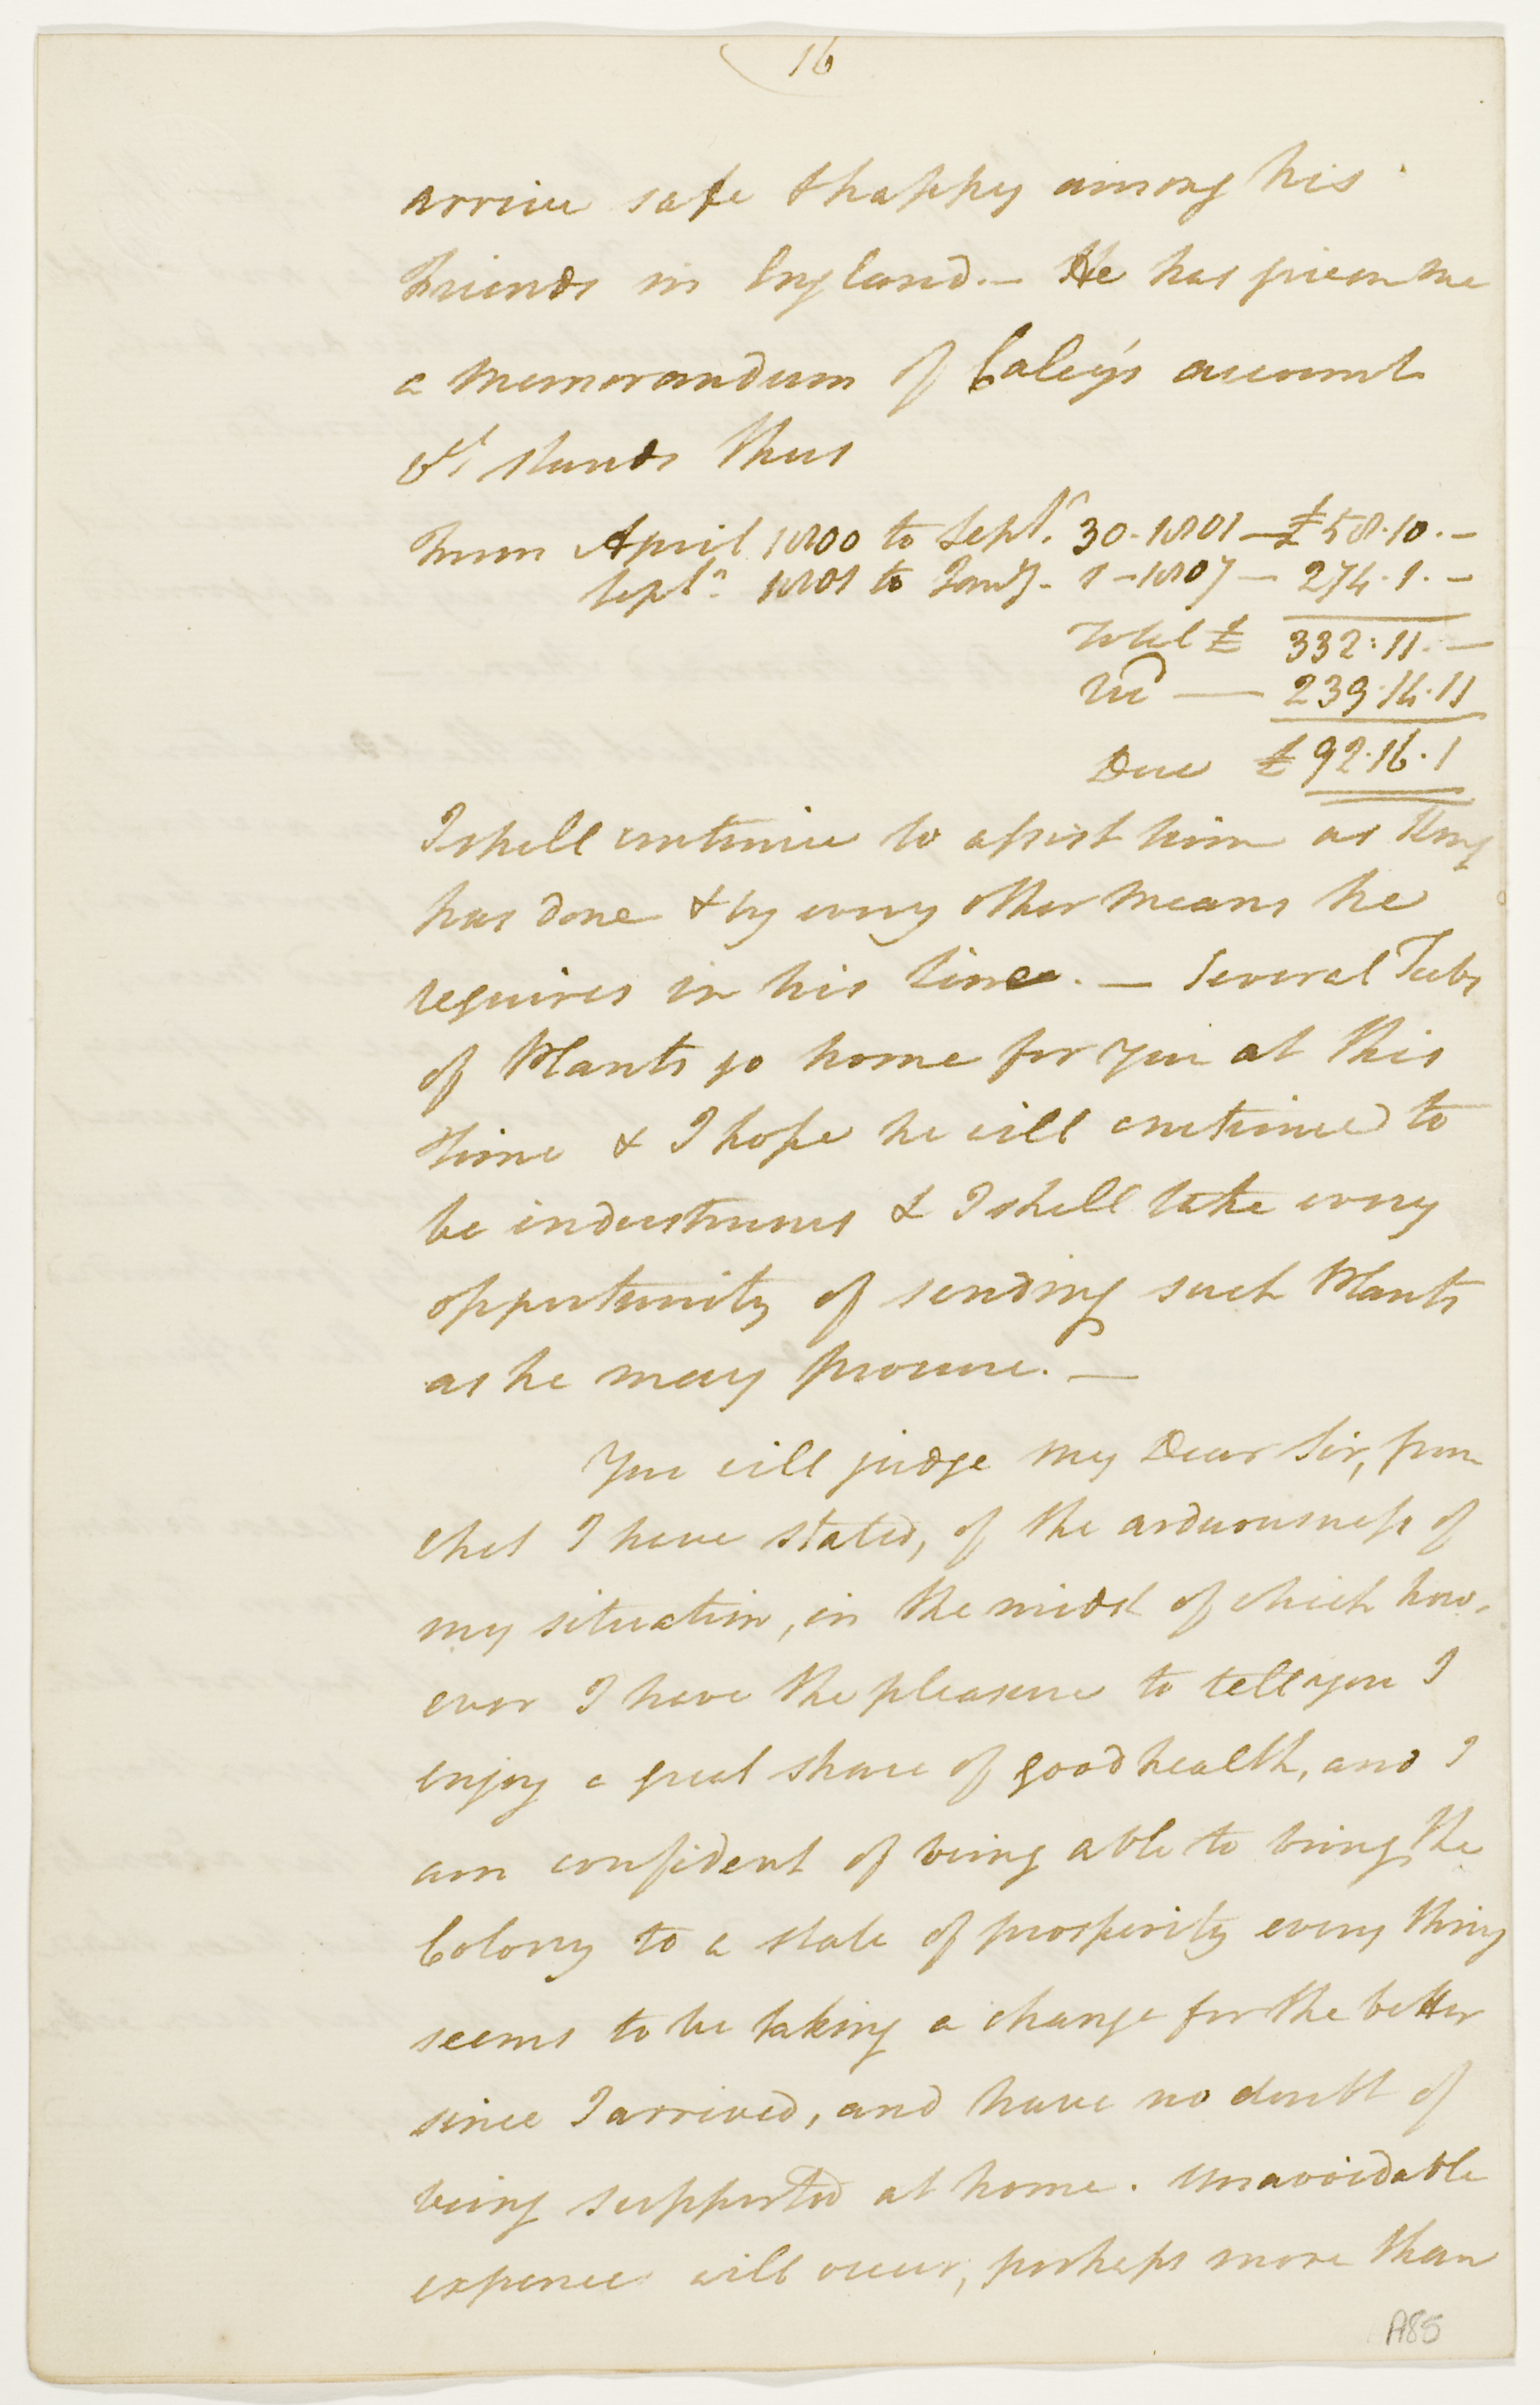 16
arrive safe & happy among his
Friends in England. — He has given me
a Memorandum of Caley's account
& it stands thus
From April 1800 to Sept.r 30 - 1801 — £58.10. —
Sept.r 1801 to Jan'y. 1 - 1807 — 274. 1. —
Total £ 332: 11. —
Rec'd — 239. 14. 11
Due £ 92. 16. 1
I shall continue to assist him as King
has done & by every other Means he
requires in his line. — Several Tubs
of Plants go home for you at this
time & I hope he will continue to
be industrious & I shall take every
opportunity of sending such Plants
as he may procure. —
You will judge my Dear Sir, from
what I have stated, of the arduousness of
my situation, in the midst of which how-
ever I have the pleasure to tell you I
enjoy a great share of good health, and I
am confident of being able to bring the
Colony to a state of prosperity every thing
seems to be taking a change for the better
since I arrived, and have no doubt of
being supported at home. Unavoidable
expence will occur, perhaps more than
A85